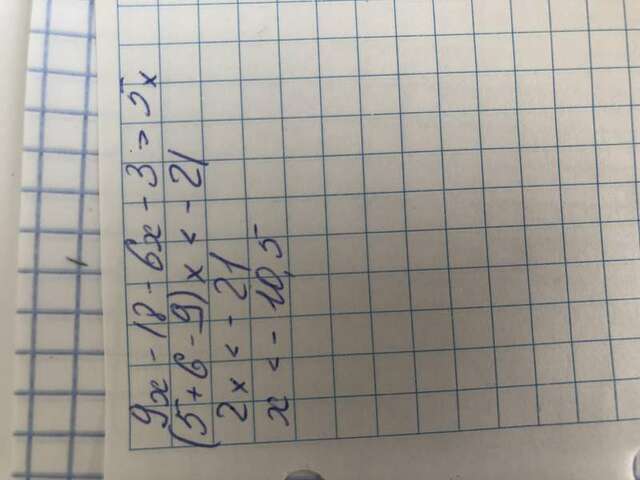 9x - 18 - 6x - 3 > 5x
(5 + 6 - 9)x < - 21
2x < - 21
x < - 10,5